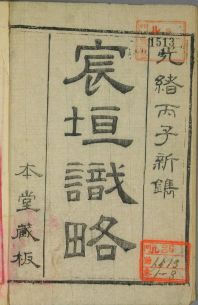 光緒丙子新鐫
宸垣識略
本堂藏板
1513
1513
1-8